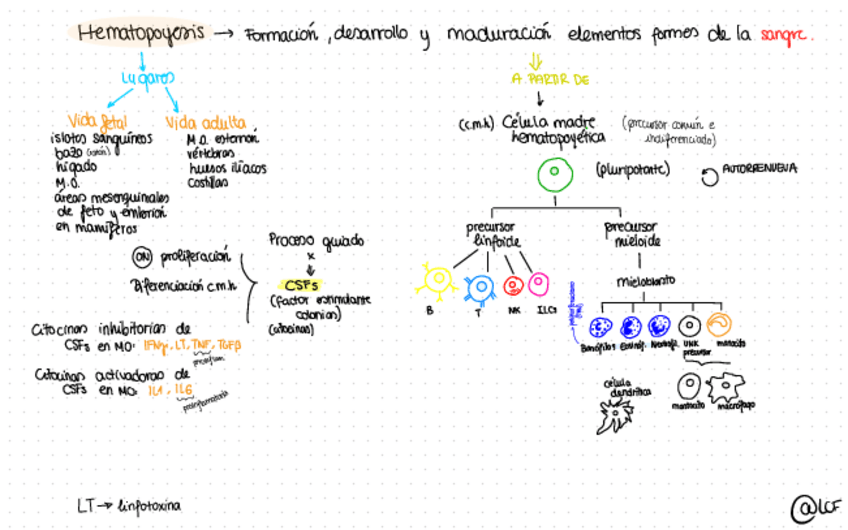 Hematopoyesis → Formación, desarrollo y maduración elementos formes de la sangre.
Lugares
Vida fetal
islotes sanguíneos
bazo (ratón)
hígado
M.O.
áreas mesenquimales
de feto y embrion
en mamíferos
Vida adulta
M.O. esternón
vértebras
huesos ilíacos
costillas
ON proliferación
Diferenciación c.m.h
Proceso guiado
x
CSFs
(factor estimulante
colonias)
(citocinas)
Citocinas inhibitorias de
CSFs en MO: IFNγ, LT, TNF, TGFβ
Citocinas activadoras de
CSFs en MO: IL1, IL6
proinflamatoria
LT → linfotoxina
A PARTIR DE
(c.m.h) Célula madre
hematopoyética
(precursor común e
indiferenciado)
(pluripotante)
AUTORRENUEVA
precursor
linfoide
precursor
mieloide
B
T
NK
ILCs
mieloblasto
Basófilos
Eosinóf.
Neutróf.
UNK
precursor
monocito
célula
dendrítica
monocito
macrófago
@LCF